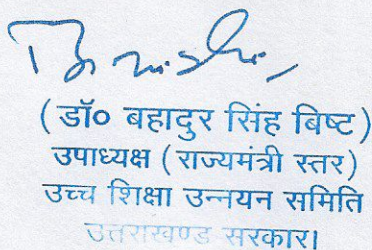 (डॉ० बहादुर सिंह बिष्ट)
उपाध्यक्ष (राज्यमंत्री स्तर)
उच्च शिक्षा उन्नयन समिति
उत्तराखण्ड सरकार।